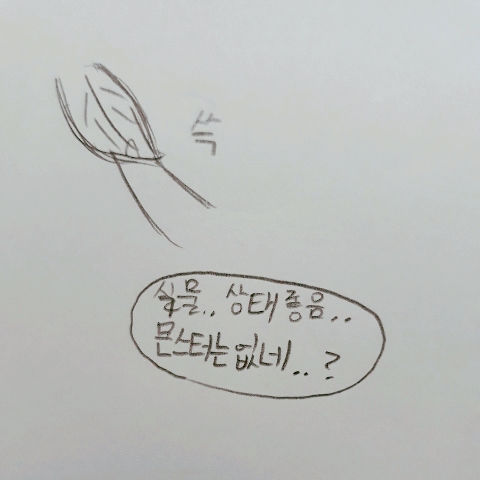 쓱
식물.. 상태 좋음..
몬스터는 없네..?